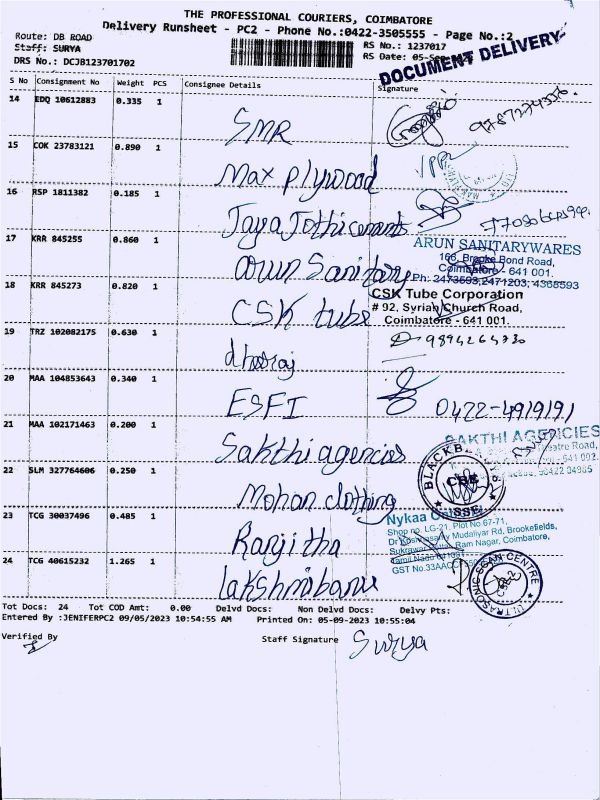 THE PROFESSIONAL COURIERS, COIMBATORE
Delivery Runsheet - PC2 - Phone No.:0422-3505555 - Page No.:2
Route: DB ROAD
RS No.: 1237017
Staff: SURYA
RS Date: 05-Sep-
DOCUMENT DELIVERY
DRS No.: DCJB123701702
S No Consignment No Weight PCS Consignee Details Signature
14 EDQ 10612883 0.335 1 SMR
15 COK 23783121 0.890 1 Max plywood
16 RSP 1811382 0.185 1 Jaya Jothi cements
17 KRR 845255 0.860 1 Arun Sanitary
ARUN SANITARYWARES
166, Brooke Bond Road,
Coimbatore - 641 001.
Ph: 2473593,2471203, 4368593
18 KRR 845273 0.820 1 CSK tube
CSK Tube Corporation
# 92, Syrian Church Road,
Coimbatore - 641 001.
19 TRZ 102082175 0.630 1 dhooraj
9894264330
20 MAA 104853643 0.340 1 ESFI
0422-4919191
21 MAA 102171463 0.200 1 Sakthi agencies
SAKTHI AGENCIES
Theatre Road,
22 SLM 327764606 0.250 1 Mohan clothing
CBE
23 TCG 30037496 0.485 1 Ranjitha
Nykaa
Shop no. LG-21, Plot No 67-71,
Mudaliyar Rd, Brookefields,
Ram Nagar, Coimbatore,
GST No.
24 TCG 40615232 1.265 1 Lakshmibanu
ULTRASONIC SCAN CENTRE
CBE-2
Tot Docs: 24 Tot COD Amt: 0.00 Delvd Docs: Non Delvd Docs: Delvy Pts:
Entered By :JENIFERPC2 09/05/2023 10:54:55 AM Printed On: 05-09-2023 10:55:04
Verified By Staff Signature Surya